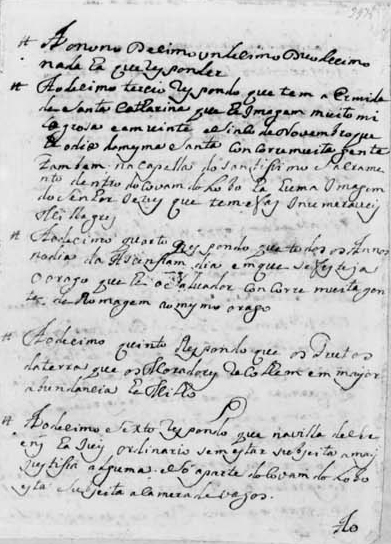 # Ao nono Decimo undesimo Duodecimo
nada ha que Responder
# Ao decimo terceio Respondo que tem a Ermida
de Santa Catharina que he Imagem muito mi
lagrosa e em vinte e sinco de Novembro que
he o dia da mesma santa concore muita gente
tambem na capella do santissimo sacramento
mento dentro do Covam do Lobo ha huma Imagem
do senhor Jezus que tem feito inumeraveis
Millagres
# Ao decimo quarto Respondo que todos os Annos
no dia da Ascensam dia em que se festeja
o orago que he o salvador concore muita gen
te de Romagem ao mesmo orago
# Ao decimo quinto Respondo que os Frutos
da terra que os Moradores Recolhem em mayor
abundancia he Milho
# Ao decimo e sexto Respondo que na villa de
ha Juis ordinario sem estar subjeita a mais
Justissa alguma e só a parte do Covam do Lobo
está subjeita a la mera de vagos.
Ao